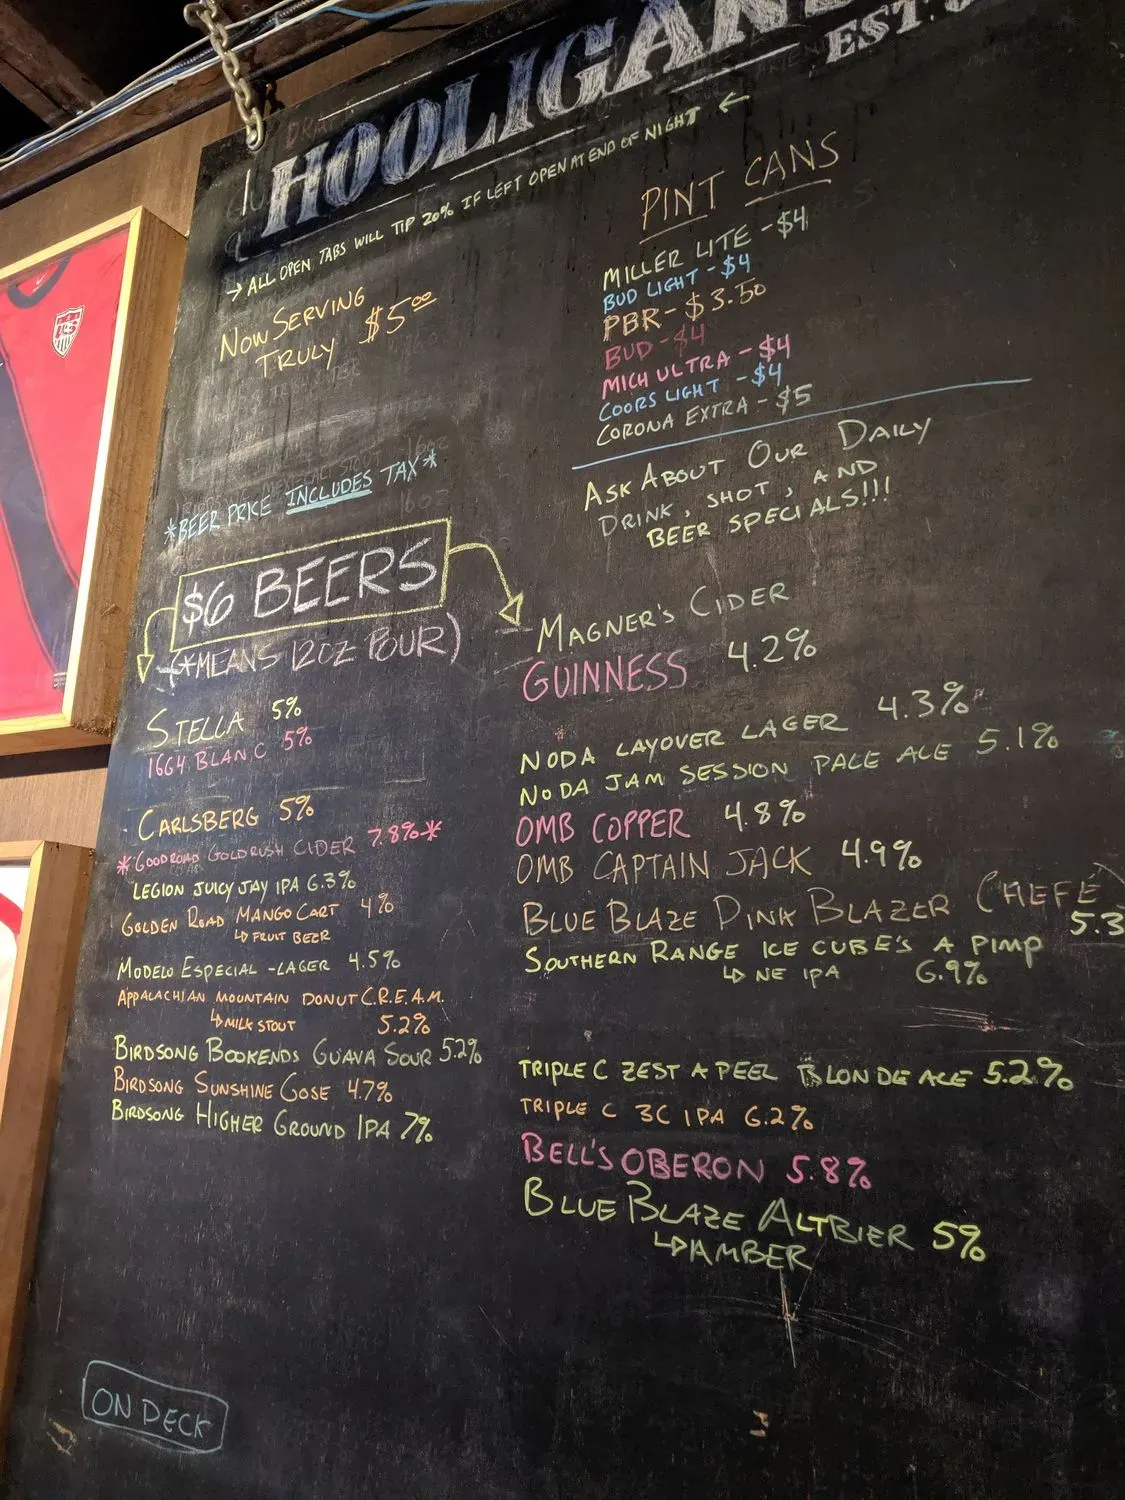 HOOLIGAN
EST.
→ ALL OPEN TABS WILL TIP 20% IF LEFT OPEN AT END OF NIGHT ←
NOW SERVING
TRULY $5.00
*BEER PRICE INCLUDES TAX*
PINT CANS
MILLER LITE - $4
BUD LIGHT - $4
PBR - $3.50
BUD - $4
MICH ULTRA - $4
COORS LIGHT - $4
CORONA EXTRA - $5
ASK ABOUT OUR DAILY
DRINK, SHOT, AND
BEER SPECIALS!!!
$6 BEERS
(*MEANS 12OZ POUR)
STELLA 5%
1664 BLANC 5%
CARLSBERG 5%
*GOODROAD GOLDRUSH CIDER 7.8%*
LEGION JUICY JAY IPA 6.3%
GOLDEN ROAD MANGO CART 4%
↳ FRUIT BEER
MODELO ESPECIAL - LAGER 4.5%
APPALACHIAN MOUNTAIN DONUT C.R.E.A.M.
↳ MILK STOUT 5.2%
BIRDSONG BOOKENDS GUAVA SOUR 5.2%
BIRDSONG SUNSHINE GOSE 4.7%
BIRDSONG HIGHER GROUND IPA 7%
MAGNER'S CIDER
GUINNESS 4.2%
NODA LAYOVER LAGER 4.3%
NODA JAM SESSION PALE ALE 5.1%
OMB COPPER 4.8%
OMB CAPTAIN JACK 4.9%
BLUE BLAZE PINK BLAZER CHEFE
5.3
SOUTHERN RANGE ICE CUBE'S A PIMP
↳ NE IPA 6.9%
TRIPLE C ZEST A PEEL BLONDE ALE 5.2%
TRIPLE C 3C IPA 6.2%
BELL'S OBERON 5.8%
BLUE BLAZE ALTBIER 5%
↳ AMBER
ON DECK